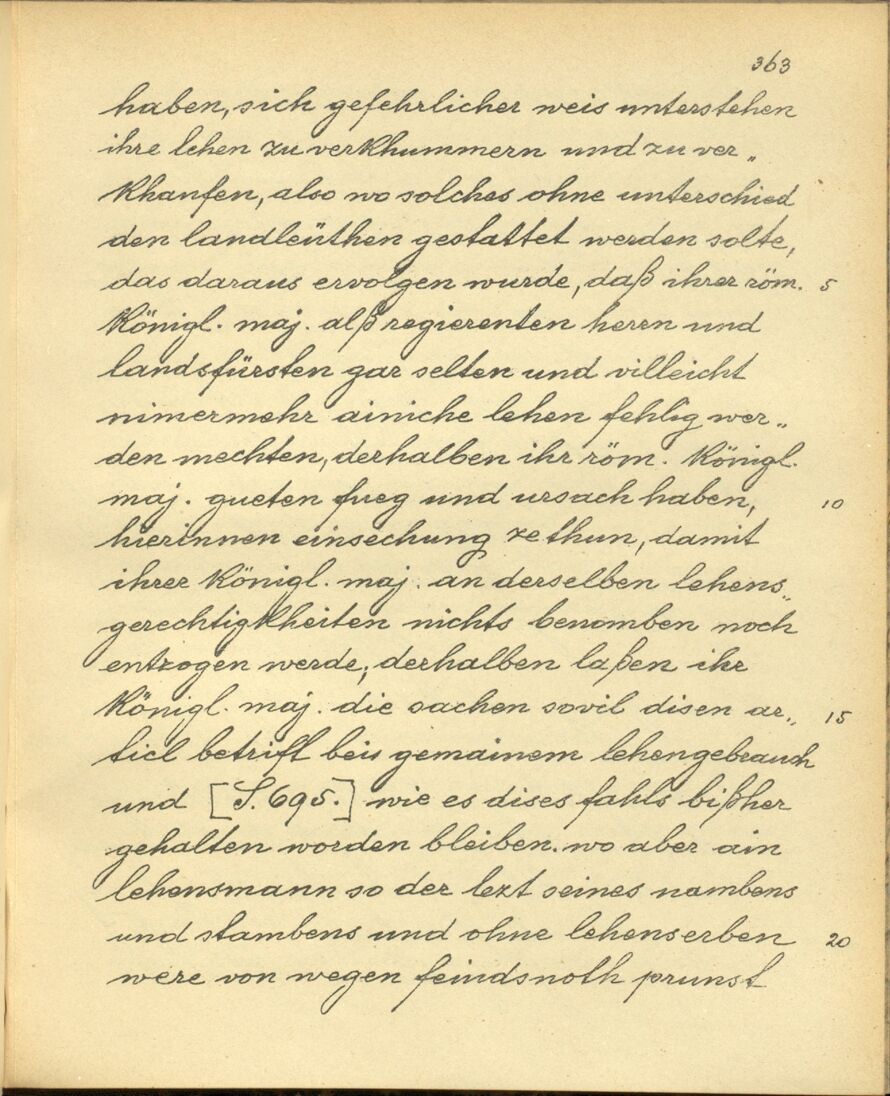 363
haben, sich gefehrlicher weis unterstehen
ihre lehen zu verkhummern und zu ver„
khaufen, also wo solches ohne unterschied
den landleüthen gestattet werden solte,
das daraus ervolgen wurde, daß ihrer röm. 5
königl. maj. alß regierenten herrn und
landsfürsten gar selten und villeicht
nimermehr ainiche lehen fehlig wer„
den mechten, derhalben ihr röm. königl.
maj. gueten fueg und ursach haben, 10
hierinnen einsechung ze thun, damit
ihrer königl. maj. an derselben lehens„
gerechtigkheiten nichts benomben noch
entzogen werde; derhalben laßen ihr
königl. maj. die sachen sovil disen ar„ 15
ticl betrifft beis gemainem lehengebrauch
und [S. 695.] wie es dises fahls bißher
gehalten worden bleiben. wo aber ain
lehensmann so der lezt seines nambens
und stambens und ohne lehenserben 20
were von wegen feindsnoth prunst